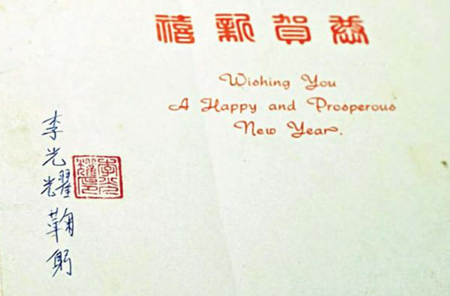 恭賀新禧
Wishing You
A Happy and Prosperous
New Year.
李光耀鞠躬
李光耀印